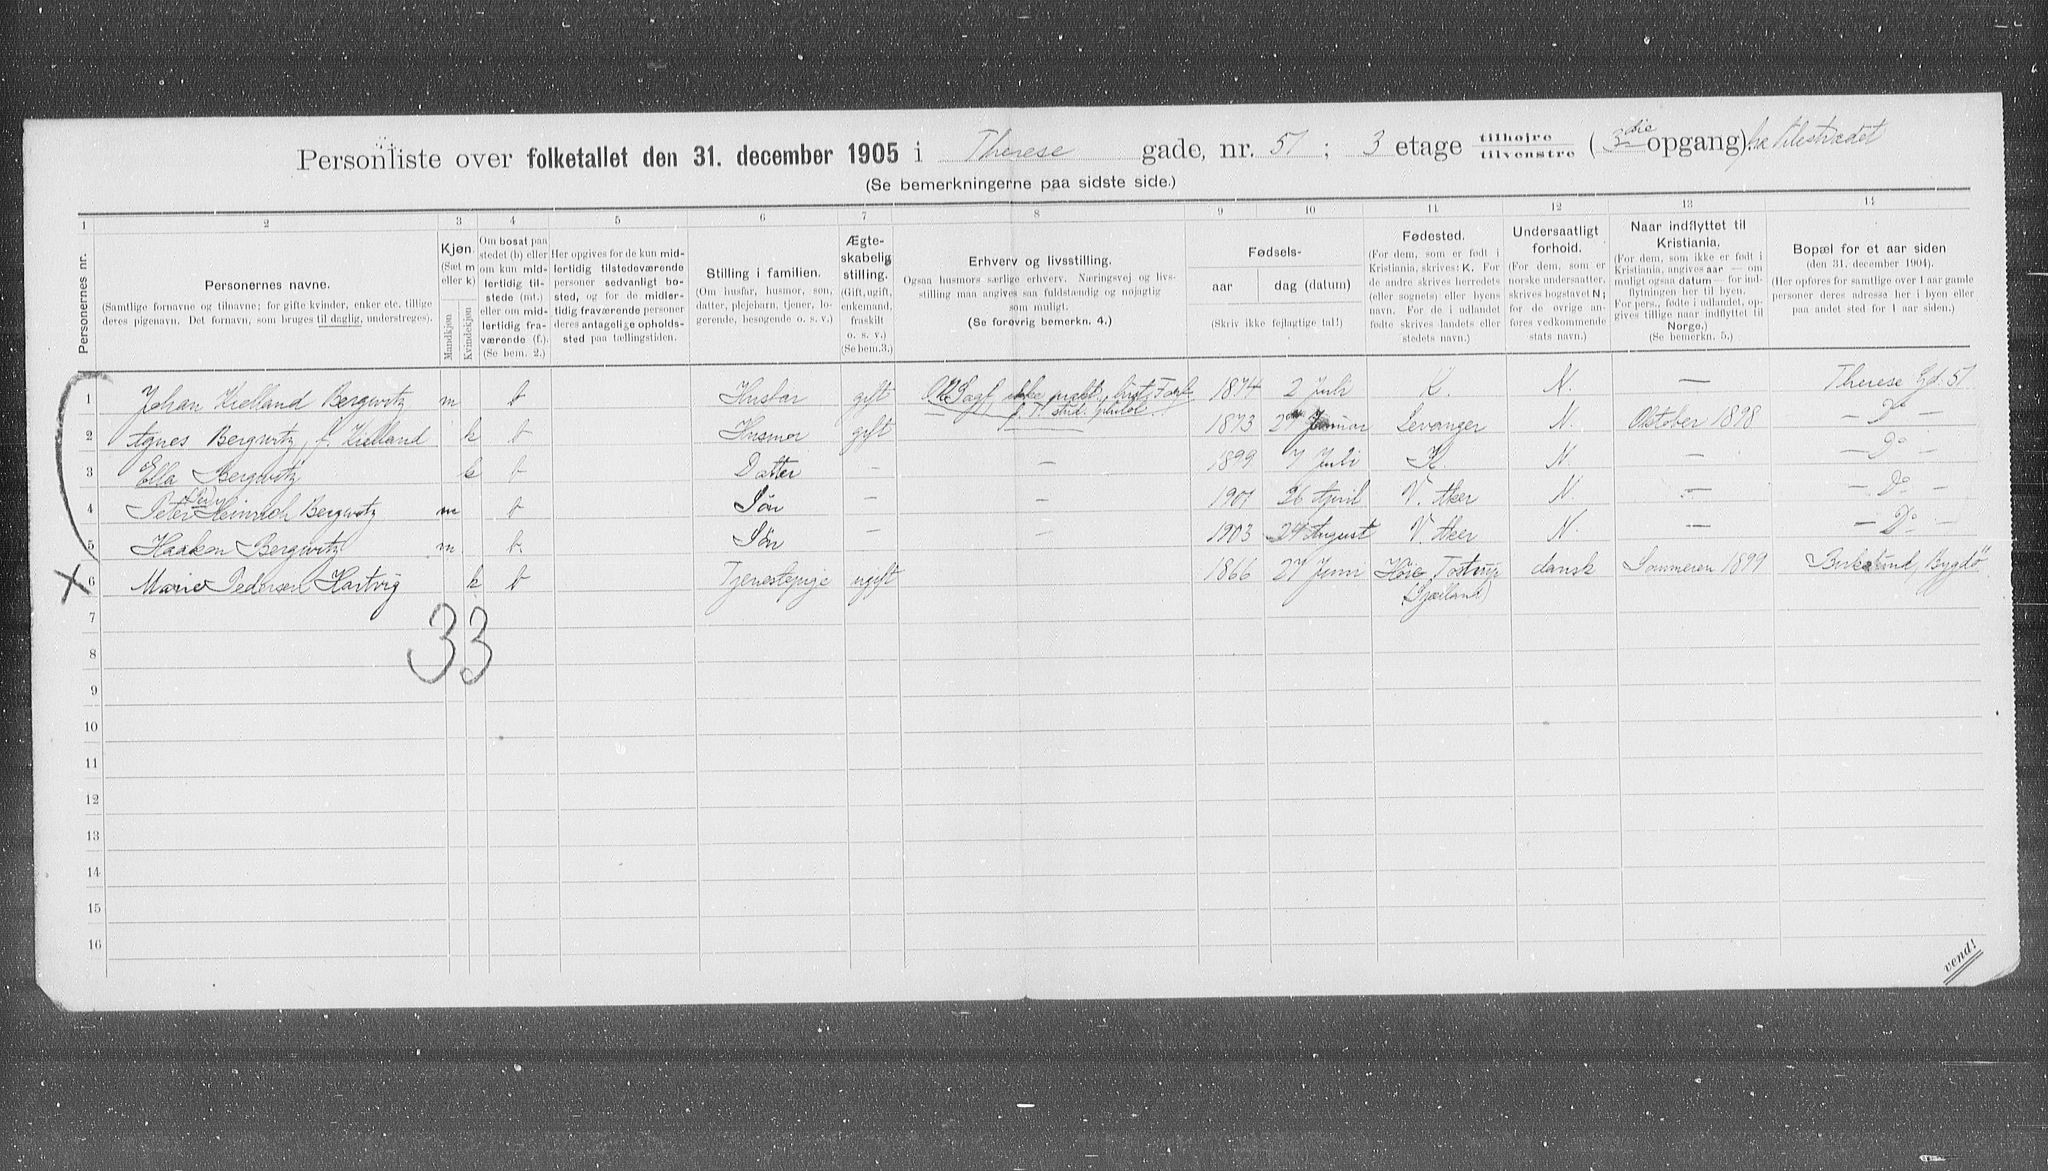 Personliste over folketallet den 31. december 1905 i Therese gade, nr. 51; 3 etage tilhøjre / tilvenstre (3die opgang). fra Pilestrædet
(Se bemerkningerne paa sidste side.)
1 2 3 4 5 6 7 8 9 10 11 12 13 14
Personernes nr.
Personernes navne.
(Samtlige fornavne og tilnavne; for gifte kvinder, enker etc. tillige
deres pigenavn. Det fornavn, som bruges til daglig, understreges).
Kjøn.
(Sæt m
eller k)
Mandkjøn
Kvindekjøn
Om bosat paa
stedet (b) eller
om kun mid-
lertidig til-
stede (mt.)
eller om mid-
lertidig fra-
værende (f.).
(Se bem. 2.)
Her opgives for de kun mid-
lertidig tilstedeværende
personer sedvanligt bo-
sted, og for de midler-
tidig fraværende personer
deres antagelige opholds-
sted paa tællingstiden.
Stilling i familien.
(Om husfar, husmor, søn,
datter, plejebarn, tjener, lo-
gerende, besøgende o. s. v.)
Ægte-
skabelig
stilling.
(Gift, ugift,
enkemand,
fraskilt
o. s. v.)
(Se bem.3.)
Erhverv og livsstilling.
Ogsaa husmors særlige erhverv. Næringsvej og livs-
stilling maa angives saa fuldstændig og nøjagtig
som muligt.
(Se forøvrig bemerkn. 4.)
Fødsels-
aar
dag (datum)
(Skriv ikke fejlagtige tal!)
Fødested.
(For dem, som er født i
Kristiania, skrives: K. For
de andre skrives herredets
(eller sognets) eller byens
navn. For de i udlandet
fødte skrives landets eller
stedets navn.)
Undersaatligt
forhold.
(For dem, som er
norske undersaatter,
skrives bogstavet N;
for de øvrige an-
føres vedkommende
stats navn.)
Naar indflyttet til
Kristiania.
(For dem, som ikke er født i
Kristiania, angives aar — om
muligt ogsaa datum — for ind-
flytningen her til byen.
For pers., fødte i udlandet, op-
gives tillige naar indflyttet til
Norge.)
(Se bemerkn. 5.)
Bopæl for et aar siden
(den 31. december 1904).
(Her opføres for samtlige over 1 aar gamle
personer deres adresse her i byen eller
paa andet sted for 1 aar siden.)
1 Johan Kielland Bergwitz m b Husfar gift 1874 2 Juli K. N. — Therese Gd. 51
2 Agnes Bergwitz, f. Kielland k b Husmor gift 1873 Januar Levanger N. Oktober 1898 — Do —
3 Ella Bergwitz k b Datter — — 1899 7 Juli K. N. — — Do —
4 Peter Heinrich Bergwitz m b Søn — — 1901 26 April V. Aker N. — — Do —
5 Haakon Bergwitz m b. Søn — — 1903 24 August V. Aker N. — — Do —
6 Marie Pedersen Hartvig k b Tjenestepige ugift 1866 27 Juni Høie Tostrup (Sjælland) dansk Sommeren 1899 Birkelund, Bygdö
7
33
8
9
10
11
12
13
14
15
16
vend!